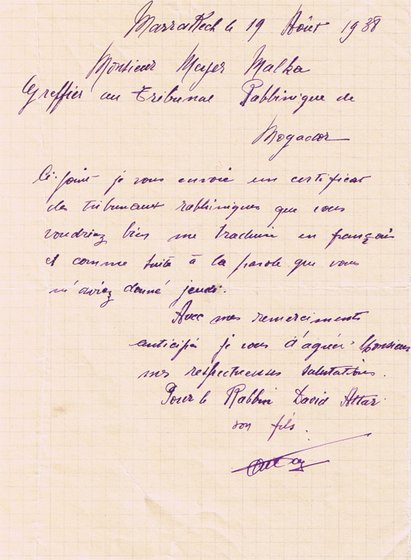 Marrakech le 19 Août 1938
Monsieur Meyer Malka
Greffier au Tribunal Rabbinique de
Mogador
Ci-joint je vous envoie un certificat
des tribunaux rabbiniques que vous
voudriez bien me traduire en français
et comme suite à la parole que vous
m'aviez donné jeudi.
Avec mes remerciments
anticipés je vous d'agréer Monsieur
mes respectueuses salutations.
Pour le Rabbin David Attar
son fils.